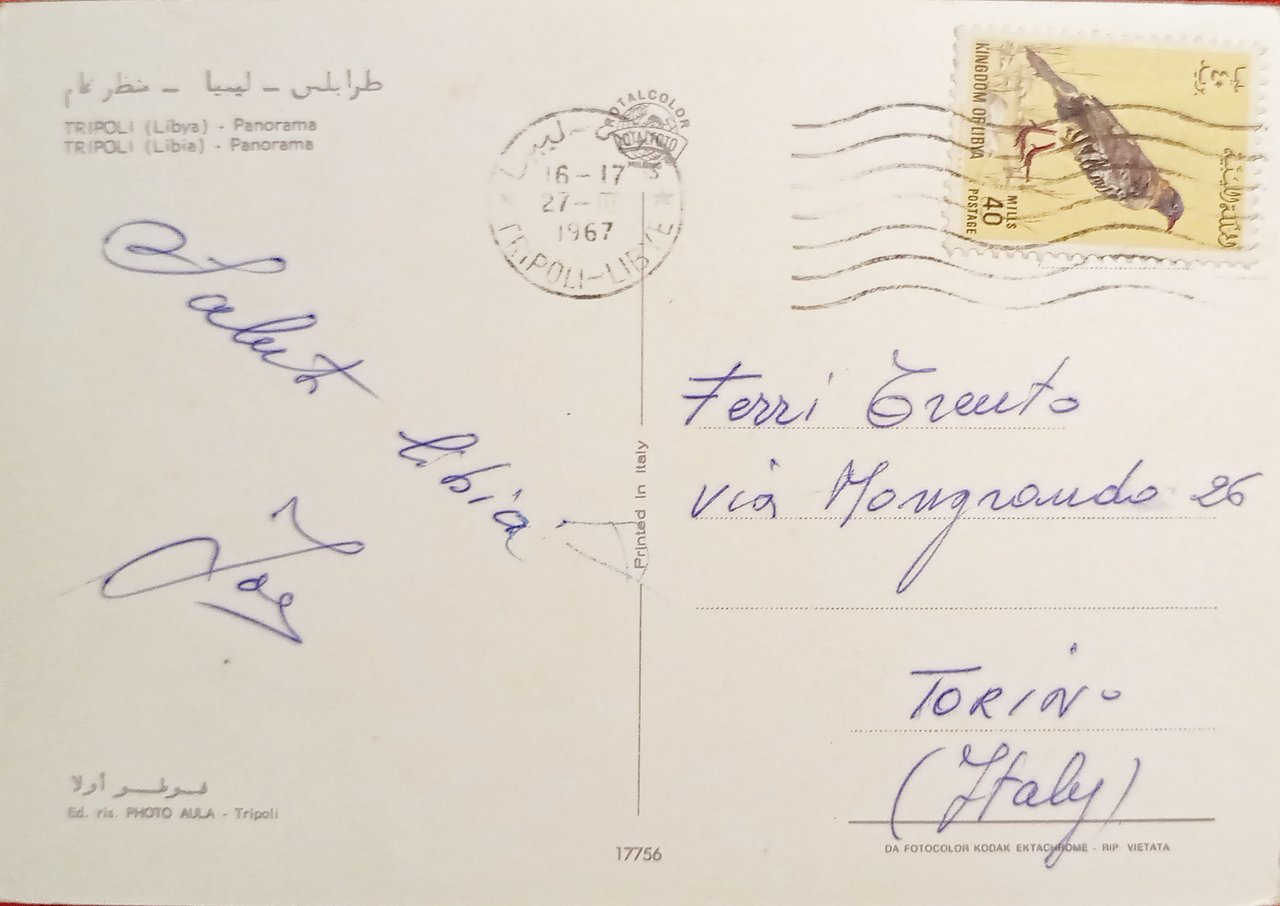 طرابلس - ليبيا - منظر عام
TRIPOLI (Libya) - Panorama
TRIPOLI (Libia) - Panorama
ROTALCOLOR
ROTALFOTO
MILANO
16-17
27-III
1967
TRIPOLI-LIBYE
KINGDOM OF LIBYA
MILLS
40
POSTAGE
Saluti
libia
Ferri Trento
via Mongrando 26
TORINO
(Italy)
Printed in Italy
فوطو أولا
Ed. ris. PHOTO AULA - Tripoli
17756
DA FOTOCOLOR KODAK EKTACHROME - RIP. VIETATA